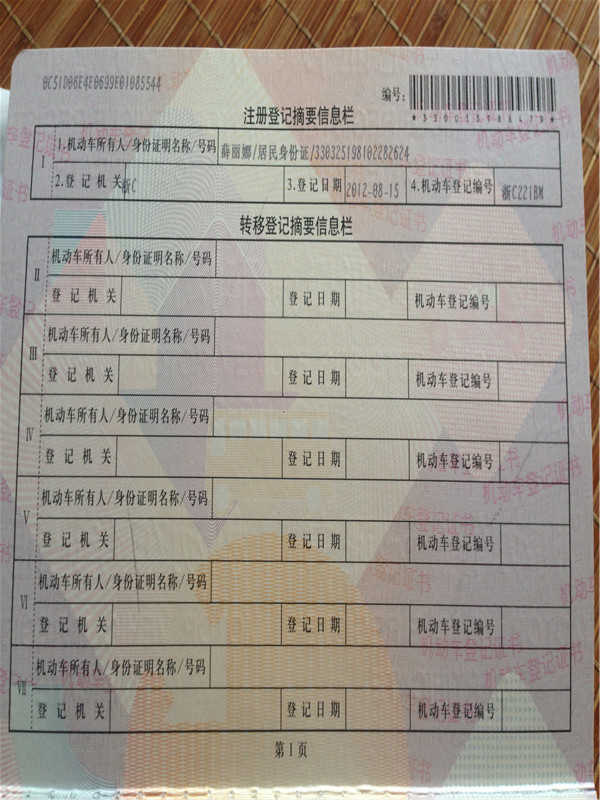 0C51D06E4E0699E01085544
编号:
*330013186479*
注册登记摘要信息栏
I 1.机动车所有人/身份证明名称/号码 薛丽娜/居民身份证/330325198102282624
2.登记机关 浙C 3.登记日期 2012-08-15 4.机动车登记编号 浙C221BM
转移登记摘要信息栏
II 机动车所有人/身份证明名称/号码
登记机关 登记日期 机动车登记编号
III 机动车所有人/身份证明名称/号码
登记机关 登记日期 机动车登记编号
IV 机动车所有人/身份证明名称/号码
登记机关 登记日期 机动车登记编号
V 机动车所有人/身份证明名称/号码
登记机关 登记日期 机动车登记编号
VI 机动车所有人/身份证明名称/号码
登记机关 登记日期 机动车登记编号
VII 机动车所有人/身份证明名称/号码
登记机关 登记日期 机动车登记编号
第1页